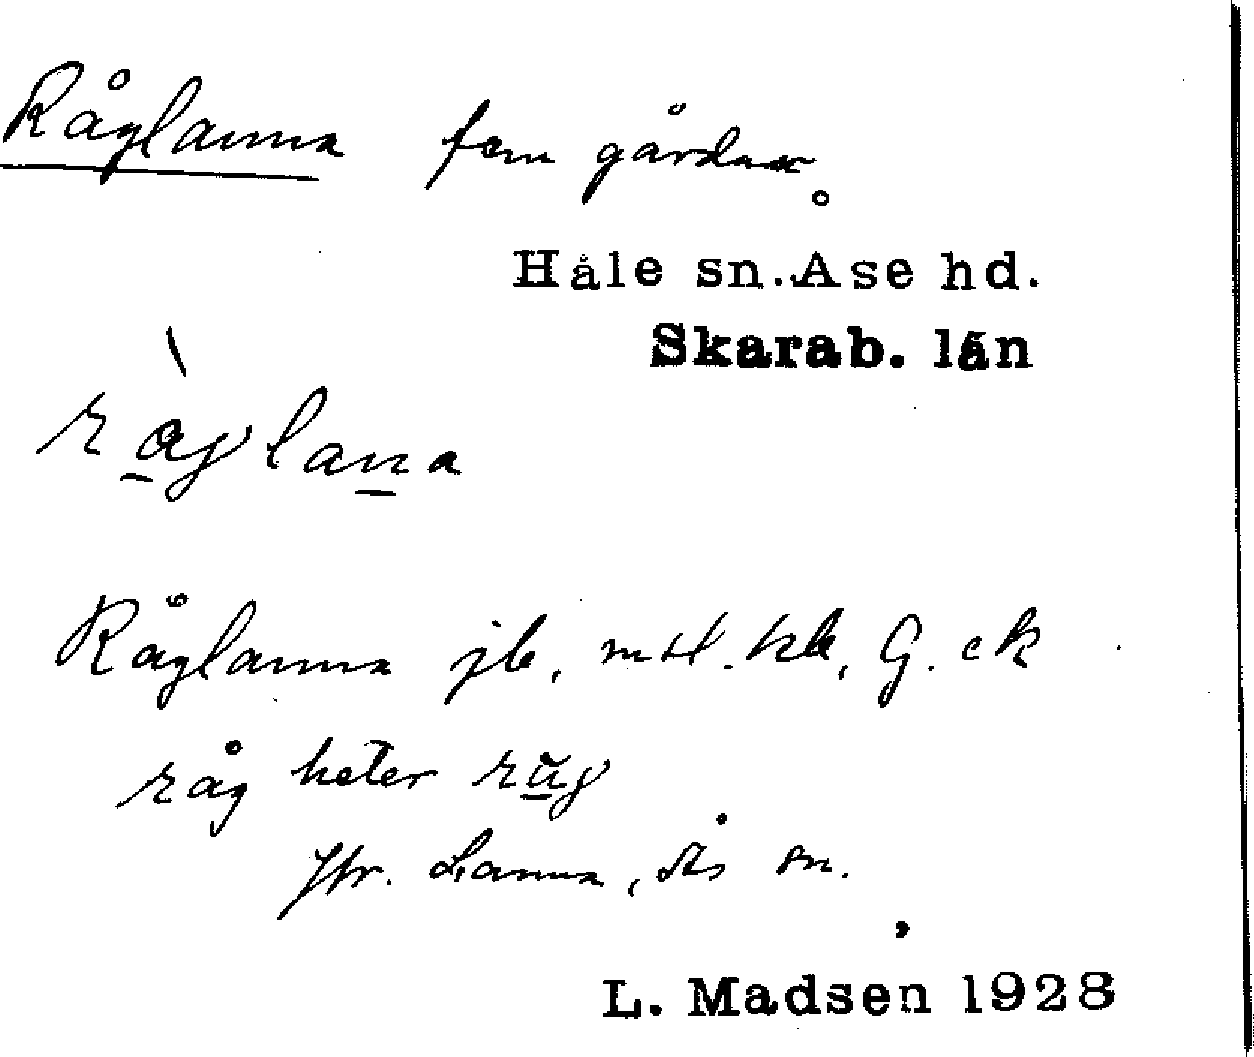 Råglanna fem gårdar
Håle sn. Åse hd.
Skarab. län
råglana
Råglanna jb, mtl. kb, G. ek
råg heter råg
Jfr. Lanna, Ås sn.
L. Madsen 1928